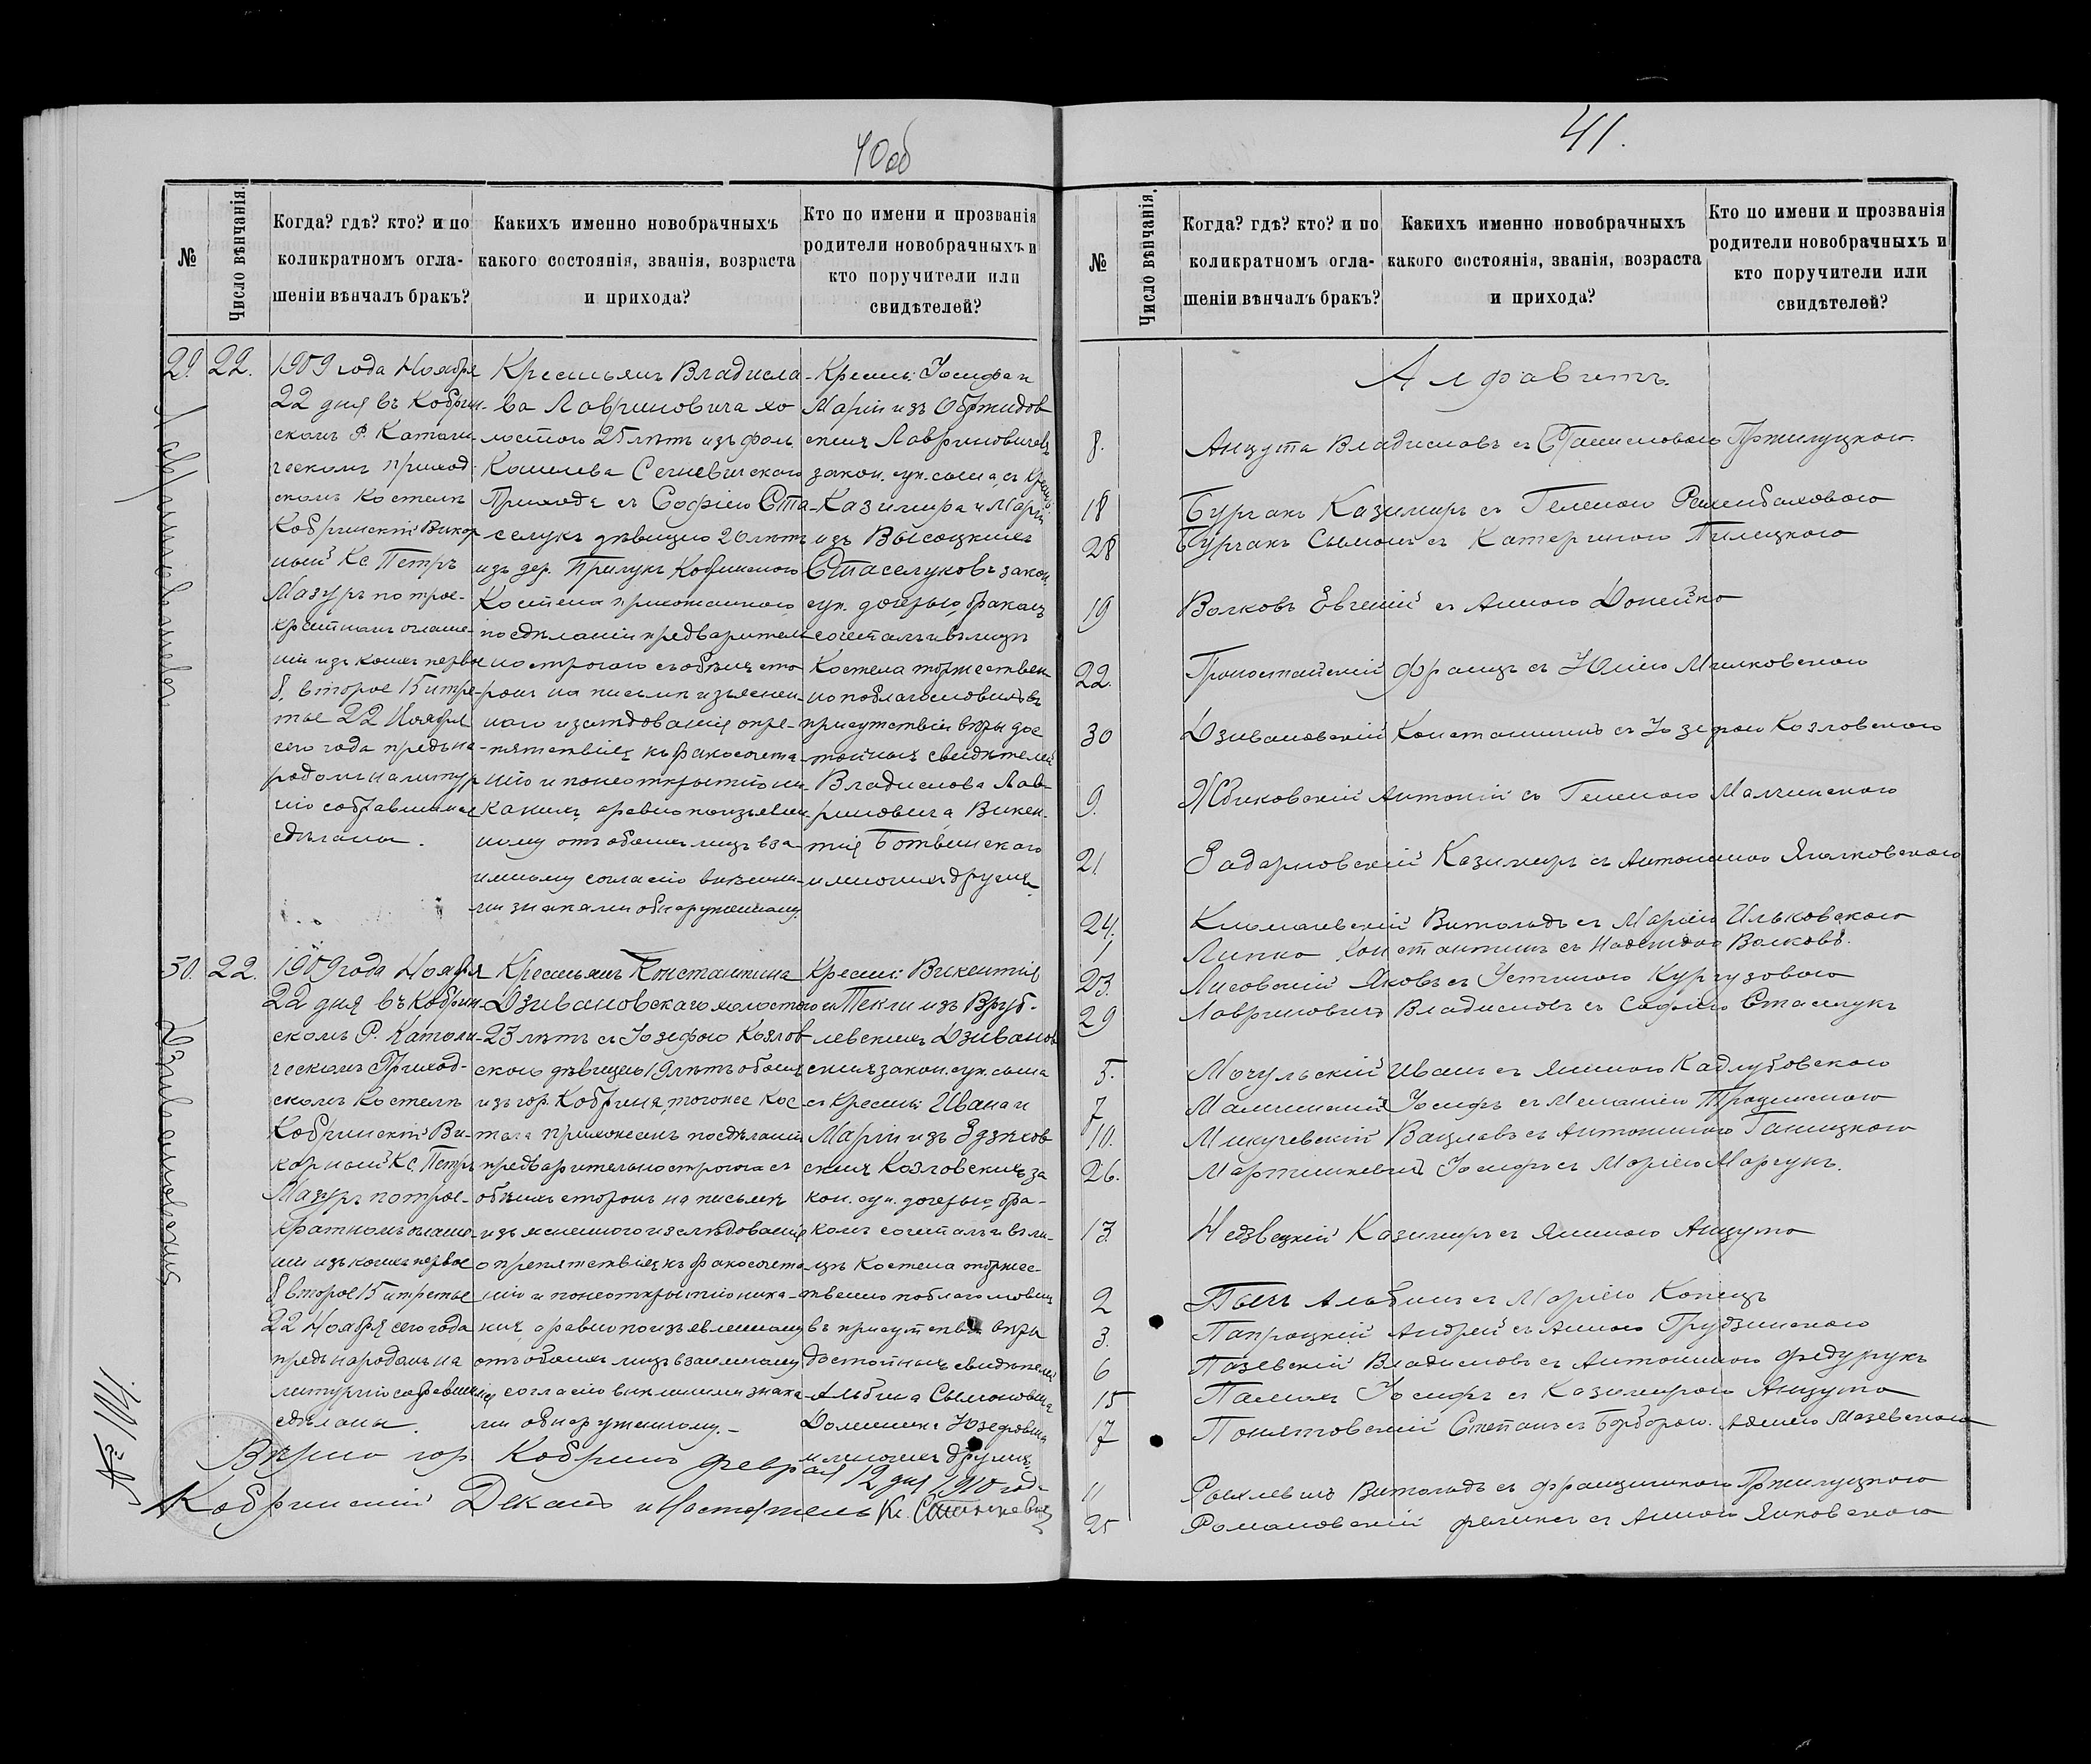 40об
№
Число вѣнчанія.
Когда? гдѣ? кто? и по
коликратномъ огла-
шеніи вѣнчалъ бракъ?
Какихъ именно новобрачныхъ
какого состоянія, званія, возраста
и прихода?
Кто по имени и прозванія
родители новобрачныхъ и
кто поручители или
свидѣтелей?
29.
22.
1909 года Ноября
22 дня въ Кобрин-
скомъ Р. Католи-
ческомъ приход-
скомъ костелѣ
Кобринскій Викар
ный Кс. Петръ
Мазуръ по трое-
кратномъ оглаше-
ніи изъ коихъ первое
8, второе 15 и тре-
тье 22 Ноября
сего года предъ на-
родомъ на литур
гію собравшимся
сдѣланы.
Крестьянъ Владисла-
ва Лавриновича хо
лостого 25 лѣтъ изъ фол.
Кошелева Сегневичского
Прихода съ Софіею Ста-
селукъ дѣвицею 26 лѣтъ
изъ дер. Прилукъ Кобринского
Костела прихожанкою
по сдѣланіи предваритель
но строгаго съ обѣихъ сто
ронъ на письмѣ изъяснен-
наго изслѣдованія о пре-
пятствіяхъ къ бракосочета-
нію и по неоткрытію ни-
какихъ, а равно по изъявлен-
ному отъ обоихъ лицъ вза-
имному согласію внѣшни-
ми знаками обнаруженному.
Крест: Іосифа и
Маріи изъ
скихъ Лавриновичевъ
закон. суп. сына, съ Крест:
Казимира и Маріи
изъ Высоцкихъ
Стаселуковъ закон.
суп. дочерью, бракомъ
сочеталъ и въ лицѣ
Костела торжествен
но поблагословилъ въ
присутствіи вѣры дос
тойныхъ свидѣтелей
Владислава Лав-
риновича, Викен-
тія Ботвинскаго
и многихъ другихъ
Лавриновичевъ
30.
22.
1909 года Ноября
22 дня въ Кобрин-
скомъ Р. Католи-
ческомъ Приход-
скомъ Костелѣ
Кобринскій Ви-
карный Кс. Петръ
Мазуръ по трое-
кратномъ оглаше-
ніи изъ коихъ первое
8 второе 15 и третье
22 Ноября сего года
предъ народомъ на
литургію собравшимся
сдѣланы.
Крестьянъ Константина
Дзивановскаго холостого
23 лѣтъ съ Іозефою Козлов
скою дѣвицею 19 лѣтъ обоихъ
изъ гор. Кобрина, тогоже Кос
тела прихожанъ по сдѣланіи
предварительно строгого съ
обѣихъ сторонъ на письмѣ
изъясненного изслѣдованія
о препятствіяхъ къ бракосочета-
нію и по неоткрытію ника-
кихъ, а равно по изъявленному
отъ обоихъ лицъ взаимному
согласію внѣшними знака-
ми обнаруженному.-
Крест: Викентія
и Текли изъ Вруб-
левскихъ Дзиванов
скихъ закон. суп. сына
съ Крест: Ивана и
Маріи изъ Здзѣхов
скихъ Козловскихъ за
кон. суп. дочерью, бра-
комъ сочеталъ и въ ли-
цѣ Костела торжес-
твенно поблагословилъ
въ присутствіи вѣры
достойныхъ свидѣтелей
Альбина Сымоновича
Доминика Юзефовича
и многихъ другихъ.
Дзивановскихъ
Вѣрно гор. Кобринъ Февраля 12 дня 1910 года
Кобринскій Деканъ и Настоятель Кс.
№ 104.
41.
№
Число вѣнчанія.
Когда? гдѣ? кто? и по
коликратномъ огла-
шеніи вѣнчалъ бракъ?
Какихъ именно новобрачныхъ
какого состоянія, званія, возраста
и прихода?
Кто по имени и прозванія
родители новобрачныхъ и
кто поручители или
свидѣтелей?
Алфавитъ.
8. Анцута Владиславъ съ Станиславою Пржилуцкою
18 Бурчакъ Казимиръ съ Геленою
28 Бурчакъ Сымонъ съ Катериною Пилецкою
19 Волковъ Евгеній съ Анною Донейко
22. Гроностайскій Францъ съ Юліею Милковскою
30 Дзивановскій Константинъ съ Іозефою Козловскою
9. Жбиковскій Антоній съ Геленою Малчинскою
21 Задарновскій Казимиръ съ Антониною Ячковскою
24. Климашевскій Витольдъ съ Маріею Ильковскою
1 Липко Константинъ съ Надеждою Волковъ.
23. Лисовскій Яковъ съ Устиною Кургузовою
29 Лавриновичъ Владиславъ съ Софіею Стаселукъ
5. Мочульскій Иванъ съ Яниною Кадлубовскою
7 Малчинскій Іосифъ съ Меланіею Троцинскою
10. Микучевскій Вацлавъ съ Антониною Ганицкою
26. Мартинкевичъ Іосифъ съ Маріею Марчукъ.
13. Недзвецкій Казимиръ съ Яниною Анцута
2 Пыхъ Альбинъ съ Маріею Конецъ
3. Папроцкій Андрей съ Анною Грудзинскою
6 Пазевскій Владиславъ съ Антониною Федурукъ
15 Іосифъ съ Казимирою Анцута
17 Понятовскій Степанъ съ Барбарою Аделею Мазевскою
11 Рыхлевичъ Витольдъ съ Францишкою Пржилуцкою
25 Романовскій Феликсъ съ Анною Янковскою